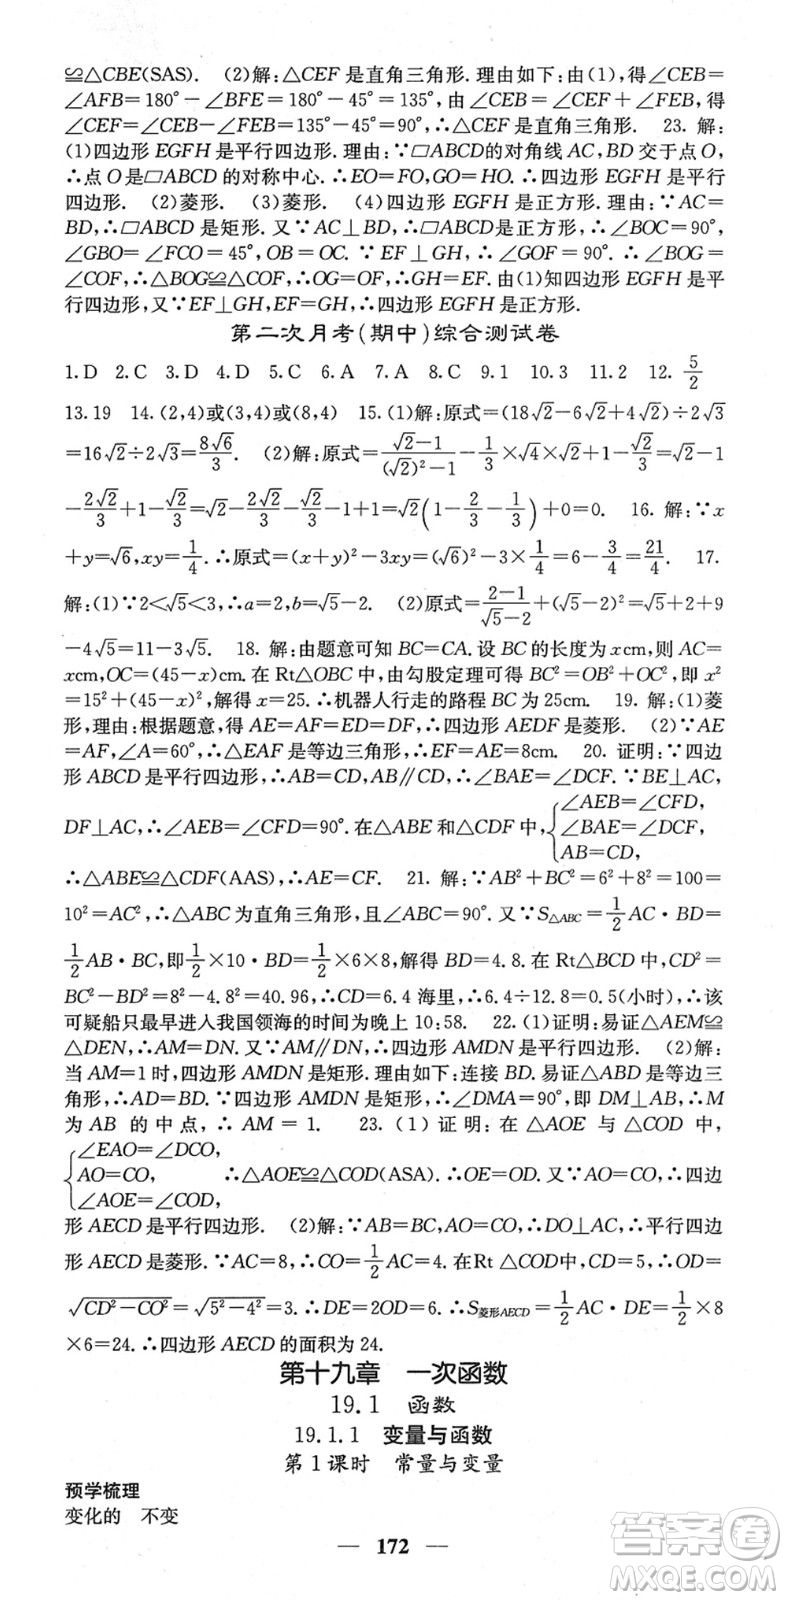 ≌△CBE(SAS). (2)解:△CEF是直角三角形.理由如下:由(1),得∠CEB=
∠AFB=180°-∠BFE=180°-45°=135°,由∠CEB=∠CEF+∠FEB,得
∠CEF=∠CEB-∠FEB=135°-45°=90°,∴△CEF是直角三角形. 23.解:
(1)四边形EGFH是平行四边形.理由:∵▱ABCD的对角线AC,BD交于点O,
∴点O是▱ABCD的对称中心.∴EO=FO,GO=HO.∴四边形EGFH是平行
四边形. (2)菱形. (3)菱形. (4)四边形EGFH是正方形.理由:∵AC=
BD,∴▱ABCD是矩形.又∵AC⊥BD,∴▱ABCD是正方形,∴∠BOC=90°,
∠GBO=∠FCO=45°,OB=OC.∵EF⊥GH,∴∠GOF=90°.∴∠BOG=
∠COF,∴△BOG≌△COF,∴OG=OF,∴GH=EF.由(1)知四边形EGFH是平
行四边形,又∵EF⊥GH,EF=GH,∴四边形EGFH是正方形.
第二次月考(期中)综合测试卷
1.D 2.C 3.D 4.D 5.C 6.A 7.A 8.C 9.1 10.3 11.2 12.5/2
13.19 14.(2,4)或(3,4)或(8,4) 15.(1)解:原式=(18√2-6√2+4√2)÷2√3
=16√2÷2√3=8√6/3. (2)解:原式=(√2-1)/((√2)²-1)-1/3×√4×√2+1-√2/3=√2-1
-2√2/3+1-√2/3=√2-2√2/3-√2/3-1+1=√2(1-2/3-1/3)+0=0. 16.解:∵x
+y=√6,xy=1/4.∴原式=(x+y)²-3xy=(√6)²-3×1/4=6-3/4=21/4. 17.
解:(1)∵2<√5<3,∴a=2,b=√5-2. (2)原式=(2-1)/(√5-2)+(√5-2)²=√5+2+9
-4√5=11-3√5. 18.解:由题意可知BC=CA.设BC的长度为xcm,则AC=
xcm,OC=(45-x)cm.在Rt△OBC中,由勾股定理可得BC²=OB²+OC²,即x²
=15²+(45-x)²,解得x=25.∴机器人行走的路程BC为25cm. 19.解:(1)菱
形,理由:根据题意,得AE=AF=ED=DF,∴四边形AEDF是菱形. (2)∵AE
=AF,∠A=60°,∴△EAF是等边三角形,∴EF=AE=8cm. 20.证明:∵四边
形ABCD是平行四边形,∴AB=CD,AB∥CD,∴∠BAE=∠DCF.∵BE⊥AC,
DF⊥AC,∴∠AEB=∠CFD=90°.在△ABE和△CDF中,{∠AEB=∠CFD,
∠BAE=∠DCF,
AB=CD,
∴△ABE≌△CDF(AAS),∴AE=CF. 21.解:∵AB²+BC²=6²+8²=100=
10²=AC²,∴△ABC为直角三角形,且∠ABC=90°.又∵S△ABC=1/2AC·BD=
1/2AB·BC,即1/2×10·BD=1/2×6×8,解得BD=4.8.在Rt△BCD中,CD²=
BC²-BD²=8²-4.8²=40.96,∴CD=6.4海里,∴6.4÷12.8=0.5(小时),∴该
可疑船只最早进入我国领海的时间为晚上10:58. 22.(1)证明:易证△AEM≌
△DEN,∴AM=DN.又∵AM∥DN,∴四边形AMDN是平行四边形. (2)解:
当AM=1时,四边形AMDN是矩形.理由如下:连接BD.易证△ABD是等边三
角形,∴AD=BD.∵四边形AMDN是矩形,∴∠DMA=90°,即DM⊥AB,∴M
为AB的中点,∴AM=1. 23.(1)证明:在△AOE与△COD中,
{∠EAO=∠DCO,
AO=CO,
∠AOE=∠COD,
∴△AOE≌△COD(ASA).∴OE=OD.又∵AO=CO,∴四边
形AECD是平行四边形. (2)解:∵AB=BC,AO=CO,∴DO⊥AC,∴平行四边
形AECD是菱形.∵AC=8,∴CO=1/2AC=4.在Rt△COD中,∴OD=
√(CD²-CO²)=√(5²-4²)=3.∴DE=2OD=6.∴S菱形AECD=1/2AC·DE=1/2×8
×6=24.∴四边形AECD的面积为24.
第十九章 一次函数
19.1 函数
19.1.1 变量与函数
第1课时 常量与变量
预学梳理
变化的 不变
— 172 —
答案圈
MXQE.COM